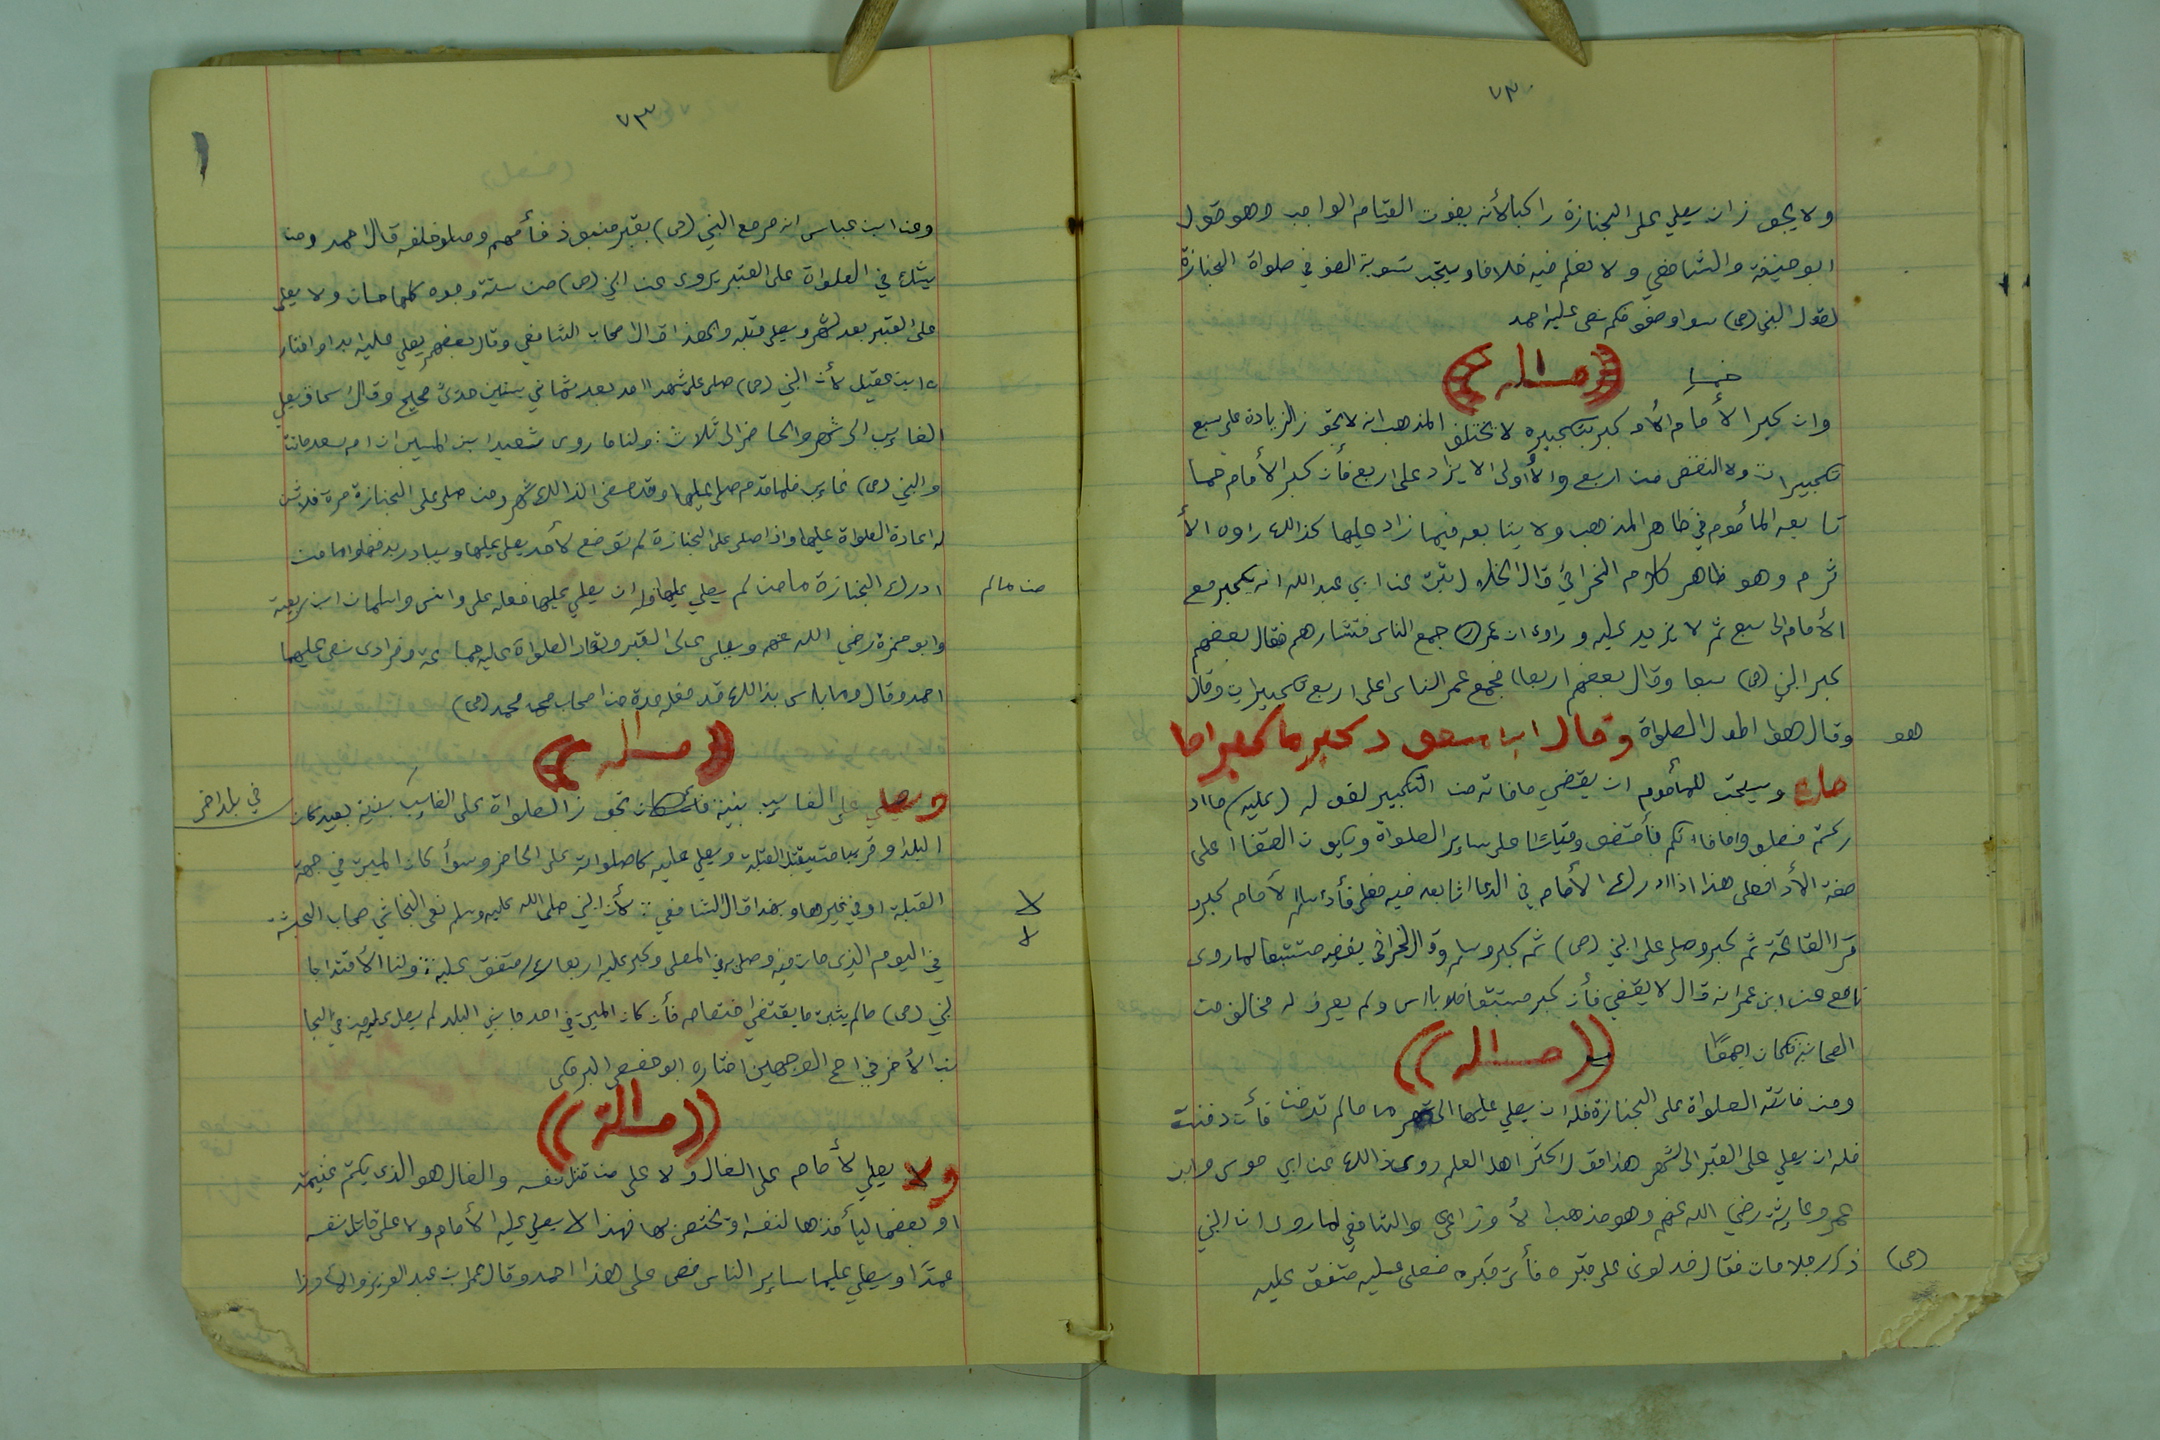 ٧٣٠
ولا يجوز ان يصلي على الجنازة راكبا لأنه يفوت القيام الواجب وهو قول
ابو حنيفة والشافعي ولا نعلم فيه خلافا ويستحب تسوية الصف في صلواة الجنازة
لقول النبي (ص) سوا وصفوفكم نص عليه احمد
((مسالة))
خمسا
وان كبر الأمام الأ كبر بتكبيره لا تختلف المذهب انه لا تجوز الزيادة على سبع
تكبيرات ولا النقص من اربع والأولى الا يزاد على اربع فأن كبر الأمام خمسا
تابعه المأموم في ظاهر المذهب ولا يتابعه فيما زاد عليها كذالك راوه الأ
ثرم وهو ظاهر كلام الخراقي قال الخلال ثبت عن ابي عبدالله انه يكبر مع
الأمام الى سبع ثم لا يزيد عليه وراوى ان عمر (ر) جمع الناس فتشارهم فقال بعضهم
كبر النبي (ص) سبعا وقال بعضهم اربعا فجمع عمر الناس على اربع تكبيرات وقال
هو
وقال هوا اطول الصلواة وقال ابن مسعود كبر ما كبر اما
مك ويستحب للمأموم ان يقضي ما فاته من التكبير لقوله (عليه) ما اد
ركتم فصلو وما فاتكم فأقضو وقياسا على ساير الصلواة ويكون القضا على
صفة الأدا فعلى هذا اذا ادرك الأمام في الدعا تابعه فيه فعلى فأذا سلم الأمام كبر و
قرا الفاتحة ثم كبر وصل على النبي (ص) ثم كبر وسلم وقال الخراقي يقضيه متتبعا لما روى
نافع عن ابن عمر انه قال لا يقضي فأن كبر متتبعا فلا باس ولم يعرف له مخالف من
الصحابة فكان اجمعا
((مسالة))
ومن فاتته الصلواة على الجنازة فله ان يصلي عليها الى شهر ما مالم تدفن فأن دفنت
فله ان يصلي على القبر الى شهر هذا قول اكثر اهل العلم روى ذالك عن ابي موسى وابن
عمر وعايشه رضي الله عنهم وهو مذهب الأوزاعي والشافعي لما روى ان النبي
(ص)
ذكر رجلا مات فقال فدلوني على قبره فأتى قبره فصلى عليه متفق عليه
٧٣
وعن ابن عباس انه مر مع النبي (ص) بقبر منبوذ فأمهم وصلو خلفه قال احمد ومن
يشك في الصلواة على القبر يروى عن النبي (ص) من ستة وجوه كلها حسان ولا يصلى
على القبر بعد شهر ويصلى قبله وبهذا قال اصحاب الشافعي وقال بعضهم يصلي عليه ابدا واختار
ه ابن عقيل لأن النبي (ص) صلى على شهداء احد بعد ثماني سنين حديث صحيح وقال اسحاق يصلي
الغايب الى شهر والحاضر الى ثلاث: ولنا ما روى سعيد ابن المسيب ان ام سعد ماتت
والنبي (ص) غايب فلما قدم صلى عليها وقد مضى لذالك شهر ومن صلى على الجنازة مرة فلا تسن
له اعادة الصلواة عليها واذا صلى على الجنازة لم توضع لأحد يصلى عليها ويبادر بدفنها واما من
من مالم
ادرك الجنازة ما من لم يصلي عليها فله ان يصلي عليها فعله على وانس وسلمان ابن ربيعة
وابو حمزة رضي الله عنهم ويصلى على القبر وتعاد الصلواة عليه جماعة وفرادى نص عليهما
احمد وقال وما باس بذالك قد فعله عدة من اصحاب محمد (ص)
((مسالة))
في بلد اخر
ويصلي على الغايب بنية فأن تجوز الصلواة على الغايب بنية بعيد كان
البلد او قريبا فيستقبل القبلة ويصلي عليه كا صلواته على الحاضر وسوأ كان الميت في جهة
القبلة او في غيرها وبهذا قال الشافعي: لأن النبي صلى الله عليه وسلم نعى النجاشي صحاب الحبشة
لا
لا
في اليوم الذي مات فيه وصلى بهم في المصلى وكبر عليه اربعا متفق عليه: ولنا الأقتدا با
لنبي (ص) مالم يثبت ما يقتضي اختصاصه فأن كان الميت في احد جانبي البلد لم يصلي عليه من في الجا
نب الأخر في اصح الوجهين اختاره ابو حفص البرمكي
((مسالة))
ولا يصلي لأمام على الغال ولا على من قتل نفسه والغال هو الذي يكتم غنيمته
او بعضها ليأخذها لنفسه او تختص بها فهذا لا يصلي عليه الأمام ولا على قاتل نفسه
عمدًا ويصلي عليهما ساير الناس نص على هذا احمد وقال عمر ابن عبدالعزيز والأوزا